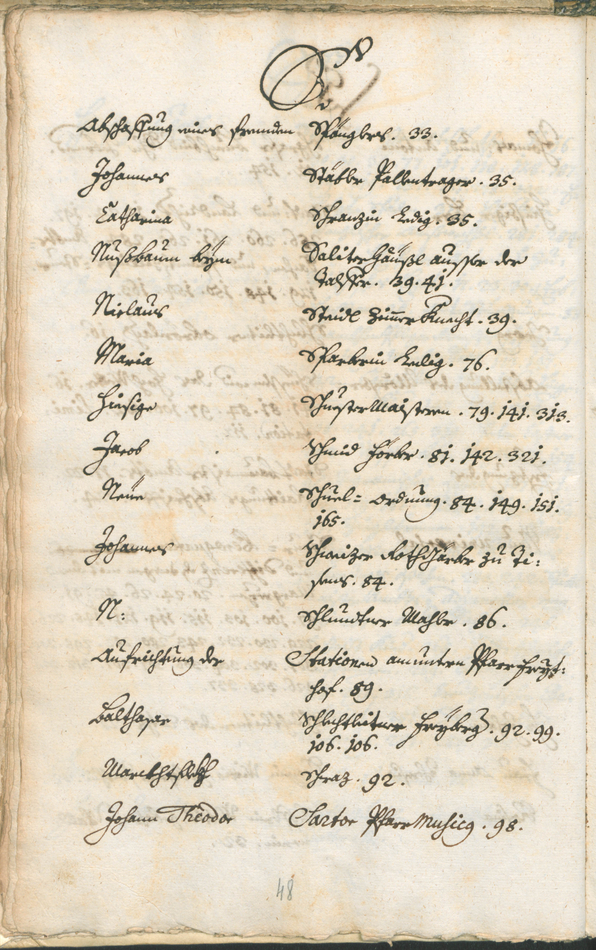 S
Abschaffung eines fremden Spänglers. 33.
Johannes Stäbler Pallentrager. 35.
Catharina Schranzin Ledig. 35.
Nußbaum beym Saliterhäusl ausser der
Talfer. 39. 41.
Niclaus Steidl Zimmer Knecht. 39.
Maria Sparberin Ledig. 76.
Hiesige Schuestermaisteren. 79. 141. 313.
Jacob Schmid Förber. 81. 142. 321.
Neue Schuel= Ordnung. 84. 149. 151.
165.
Johannes Schweizer Rothgärber zu Ti:
sens. 84.
N: Schlundtner Mahler. 86.
Aufrichtung der Stationen am untern Pfarr Freyt:
hof. 89.
Balthasar Schlechtleitner 92. 99.
106. 106.
Schraz. 92.
Johann Theodor Sartor Pfarr Musicg. 98.
48